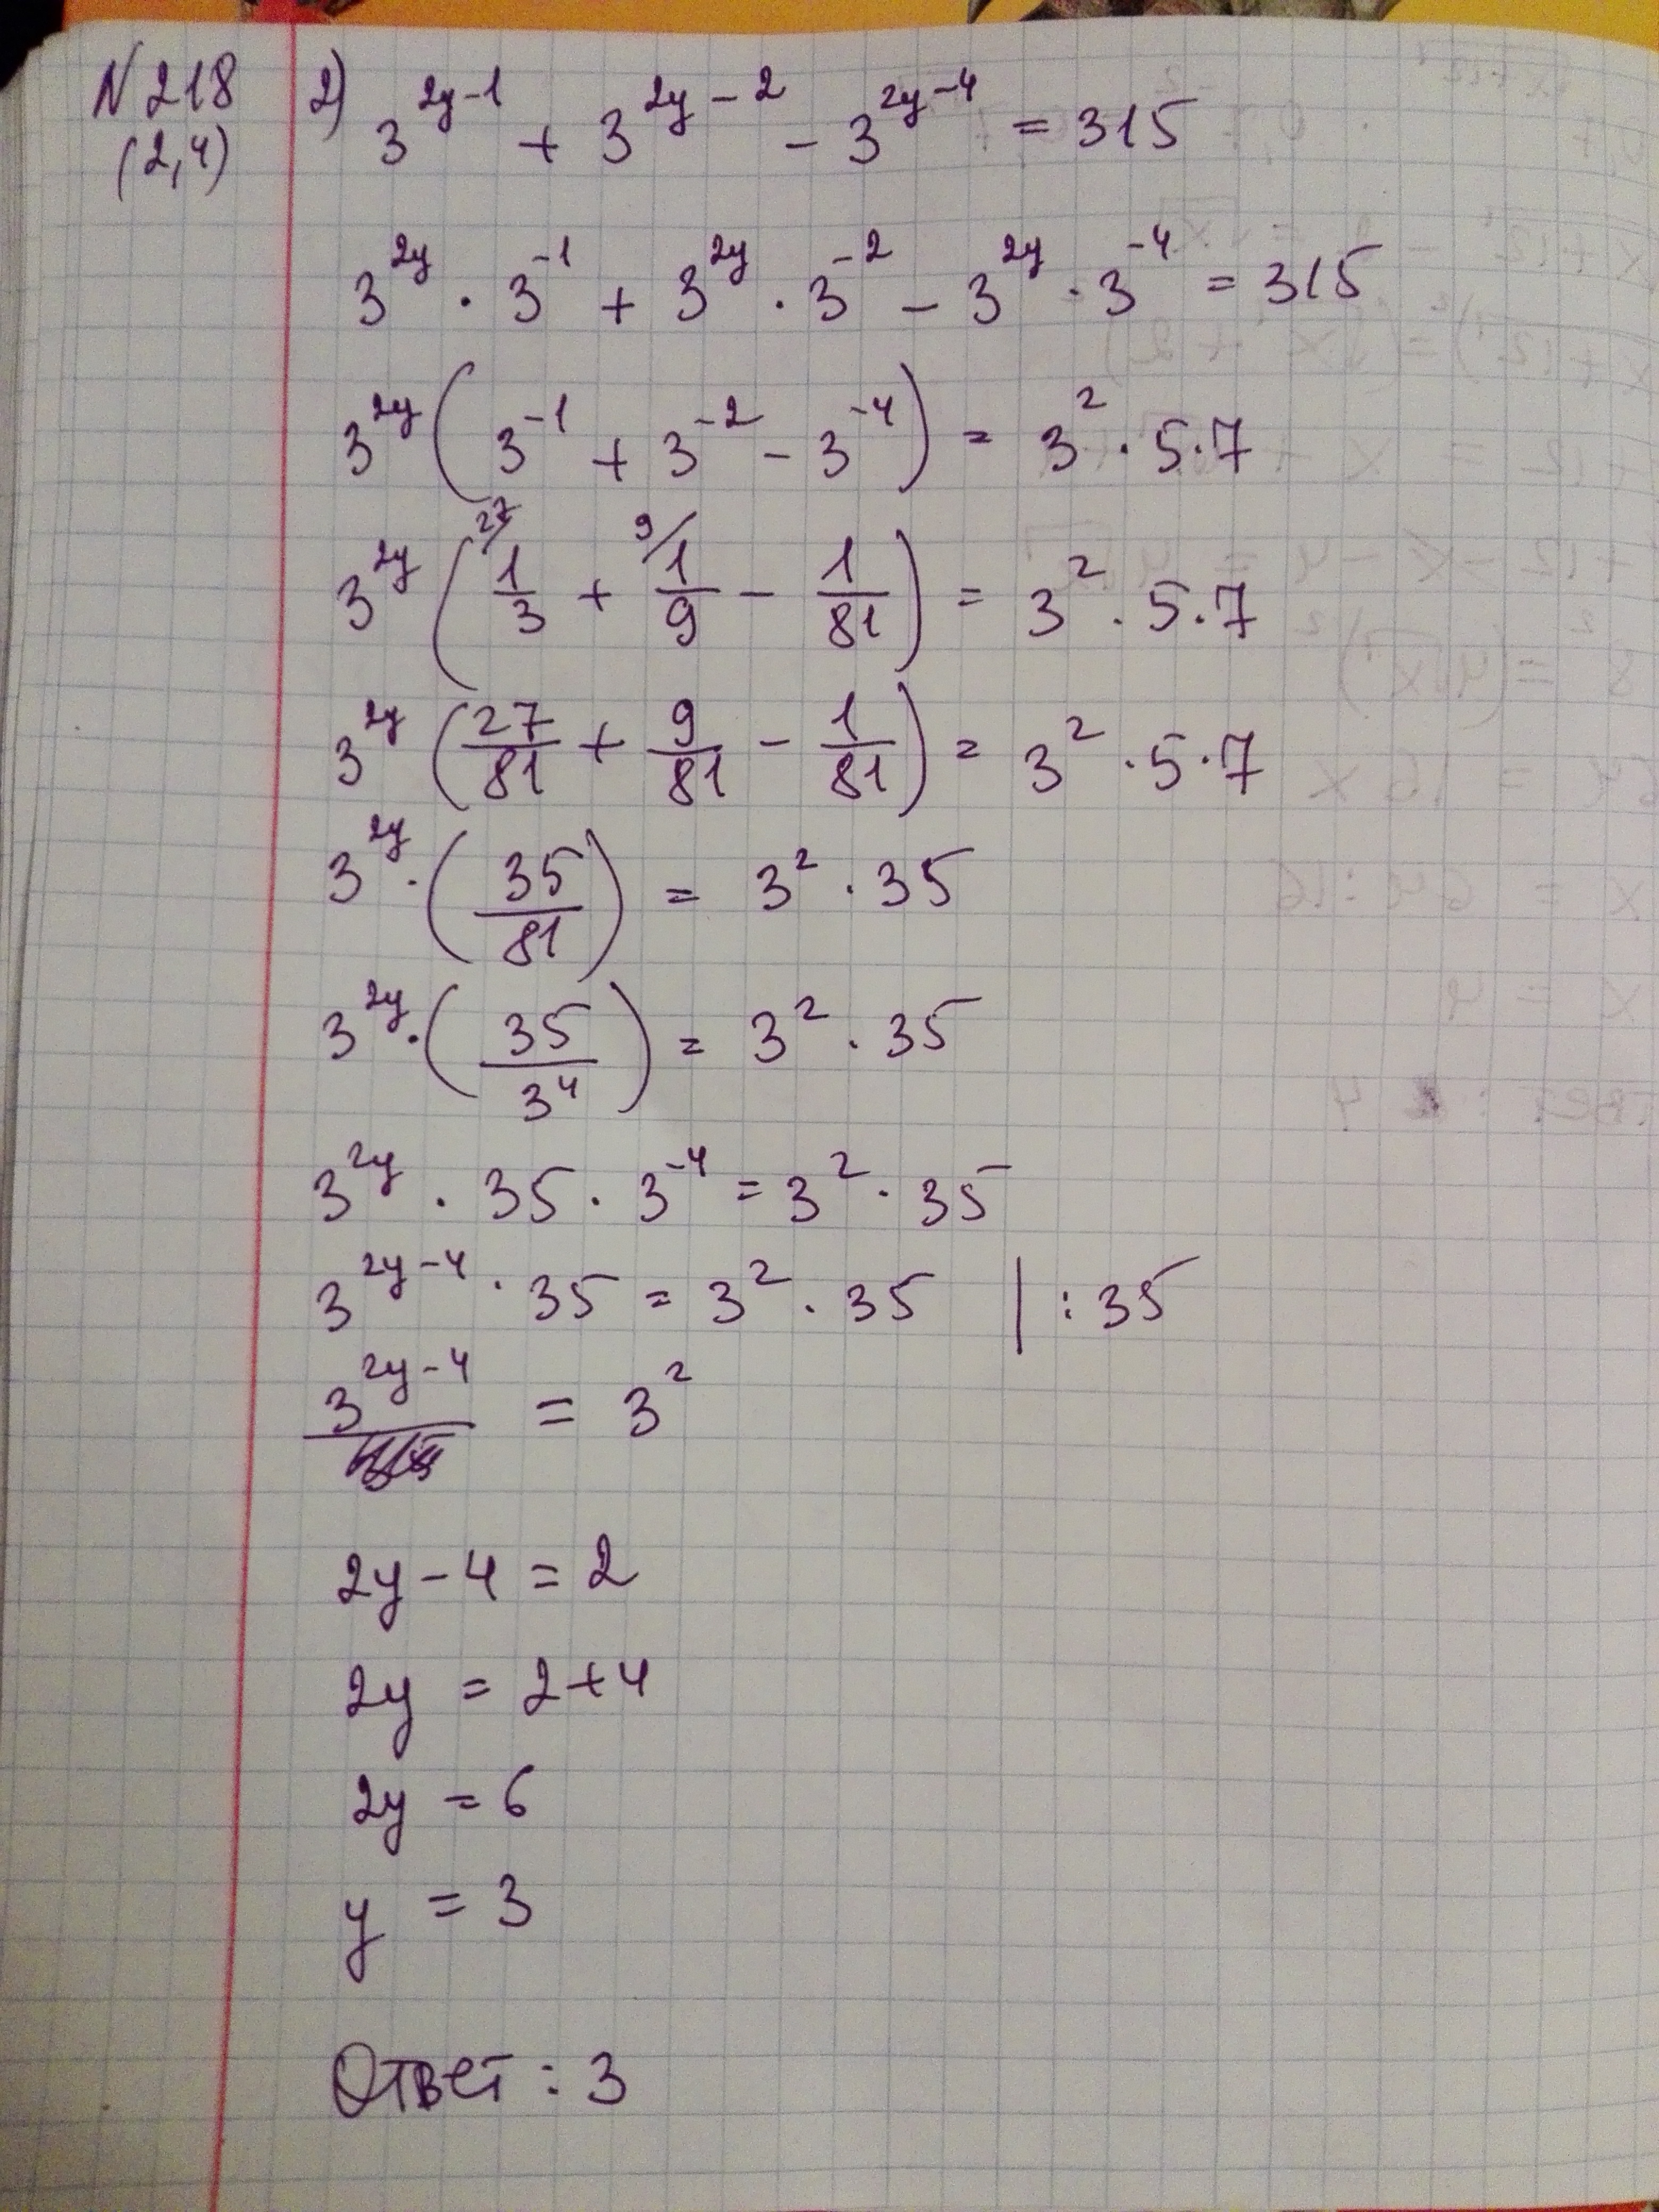 N 218 2) 3^{2y-1} + 3^{2y-2} - 3^{2y-4} = 315
(2,4)
3^{2y} · 3^{-1} + 3^{2y} · 3^{-2} - 3^{2y} · 3^{-4} = 315
3^{2y} (3^{-1} + 3^{-2} - 3^{-4}) = 3^2 · 5 · 7
3^{2y} (^{27/} 1/3 + ^{9/} 1/9 - 1/81) = 3^2 · 5 · 7
3^{2y} (27/81 + 9/81 - 1/81) = 3^2 · 5 · 7
3^{2y} · (35/81) = 3^2 · 35
3^{2y} · (35/3^4) = 3^2 · 35
3^{2y} · 35 · 3^{-4} = 3^2 · 35
3^{2y-4} · 35 = 3^2 · 35 | : 35
3^{2y-4} = 3^2
2y - 4 = 2
2y = 2 + 4
2y = 6
y = 3
Ответ : 3